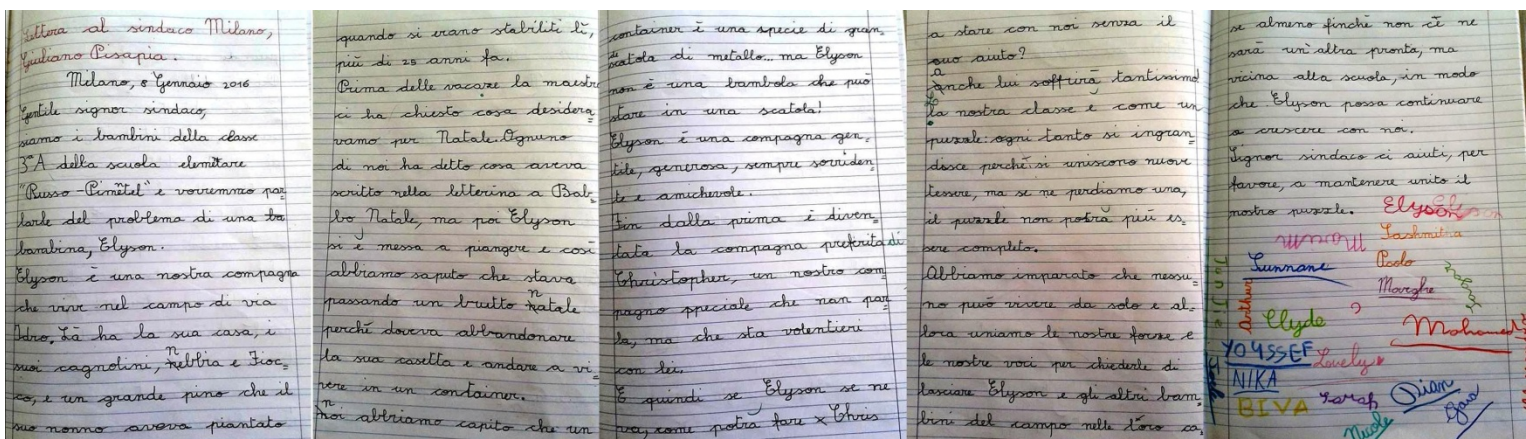 Lettera al sindaco Milano,
Giuliano Pisapia.
Milano, 8 Gennaio 2016
Gentile signor sindaco,
siamo i bambini della classe
3ª A della scuola elementare
"Russo-Pimentel" e vorremmo par
larle del problema di una ba
bambina, Elyson.
Elyson è una nostra compagna
che vive nel campo di via
Idro. Là ha la sua casa, i
suoi cagnolini, nebbia e Fioc=
co, e un grande pino che il
suo nonno aveva piantato
quando si erano stabiliti lì,
più di 25 anni fa.
Prima delle vacaze la maestra
ci ha chiesto cosa desidera
vamo per Natale. Ognuno
di noi ha detto cosa aveva
scritto nella letterina a Bab
bo Natale, ma poi Elyson
si è messa a piangere e così
abbiamo saputo che stava
passando un brutto natale
perché doveva abbandonare
la sua casetta e andare a vi=
vere in un container.
noi abbiamo capito che un
container è una specie di gran
de scatola di metallo... ma Elyson
non è una bambola che può
stare in una scatola!
Elyson è una compagna gen=
tile, generosa, sempre sorriden
te e amichevole.
Fin dalla prima è diven=
tata la compagna preferita di
Christopher, un nostro com
pagno speciale che non par
la, ma che sta volentieri
con lei.
E quindi se Elyson se ne
va, come potrà fare x Chris
a stare con noi senza il
suo aiuto?
anche lui soffrirà tantissimo
la nostra classe è come un
puzzle: ogni tanto si ingran
disce perché si uniscono nuove
tessere, ma se ne perdiamo una,
il puzzle non potrà più es=
sere completo.
Abbiamo imparato che nessu
no può vivere da solo e al=
lora uniamo le nostre forze e
le nostre voci per chiederle di
lasciare Elyson e gli altri bam
bini del campo nelle loro ca
se almeno finché non c'è ne
sarà un'altra pronta, ma
vicina alla scuola, in modo
che Elyson possa continuare
a crescere con noi.
Signor sindaco ci aiuti, per
favore, a mantenere unito il
nostro puzzle.
Elyson
Lashmitha
Paolo
Marghe
Arthur
Clyde
Mohamed
YOUSSEF
Lovely
NIKA
BIVA
Sarah
Dian
Nicole